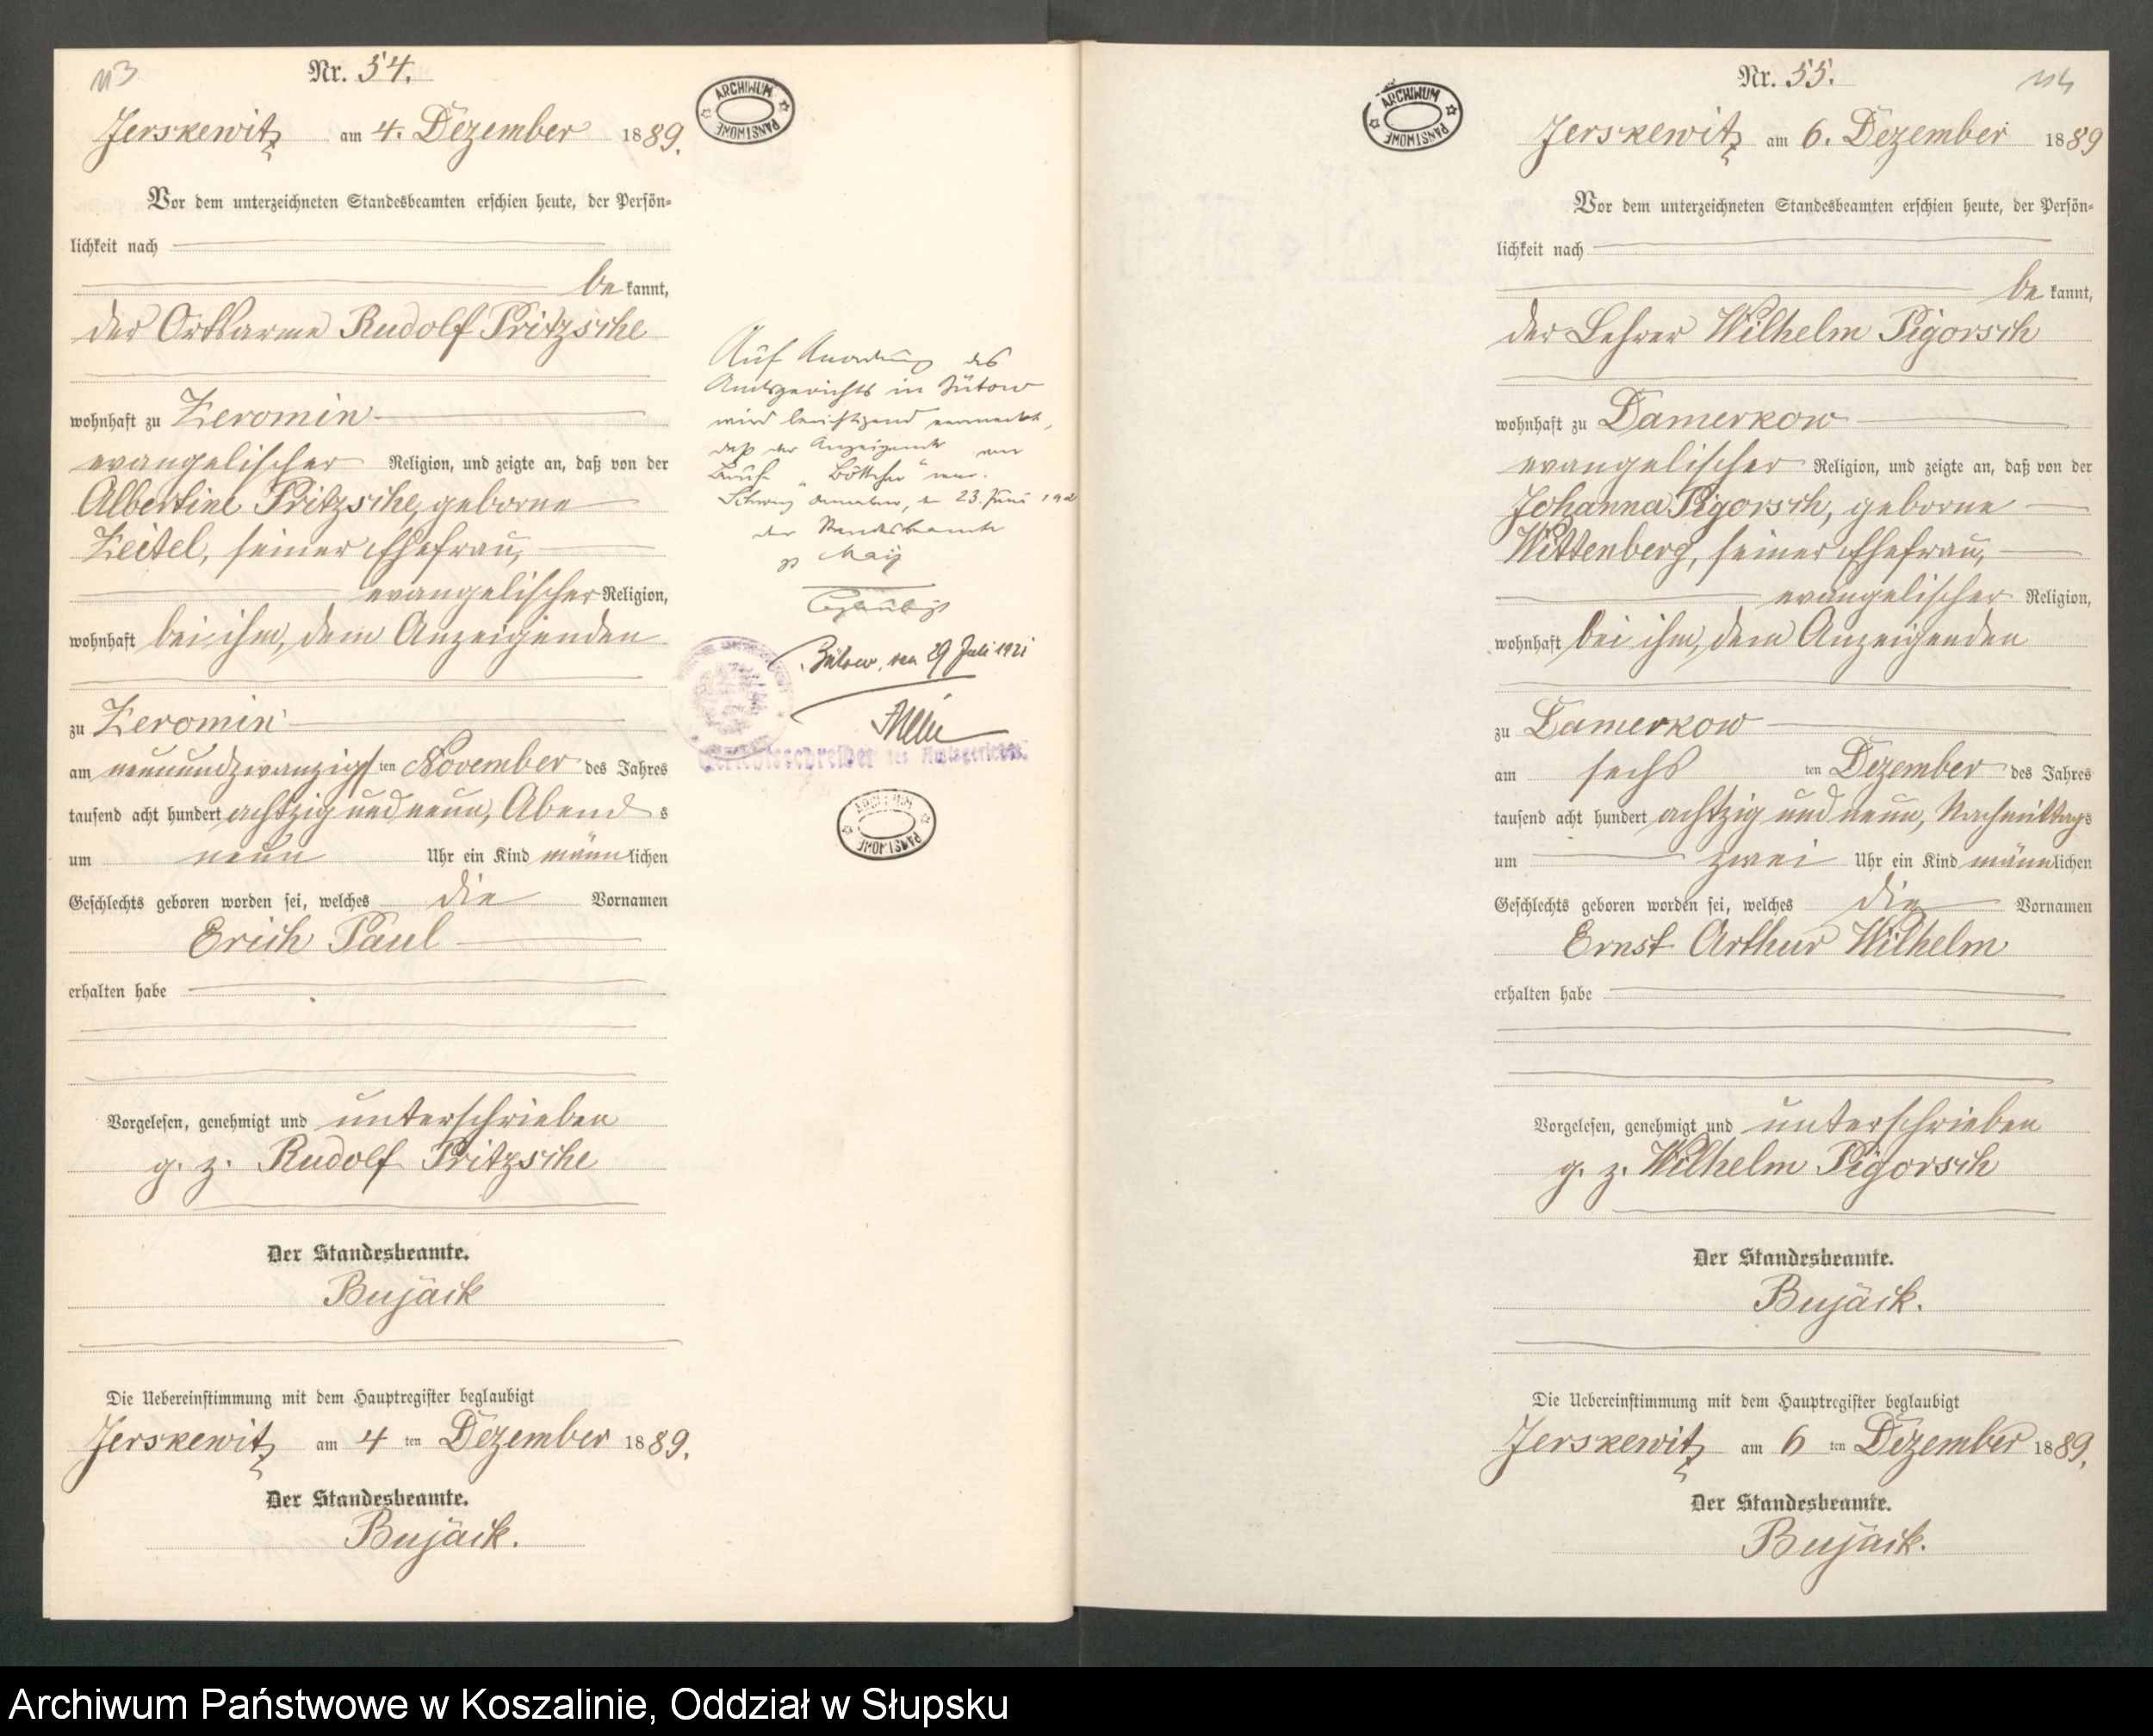 113
Nr. 54.
ARCHIWUM PAŃSTWOWE
Jerskewitz am 4. Dezember 1889.
Vor dem unterzeichneten Standesbeamten erschien heute, der Persön-
lichkeit nach
be kannt,
der Ortsarme Rudolf Pritzsche
wohnhaft zu Zeromin
evangelischer Religion, und zeigte an, daß von der
Albertine Pritzsche, geborne
Zeitel, seiner Ehefrau,
evangelischer Religion,
wohnhaft bei ihm, dem Anzeigenden
zu Zeromin
am neunundzwanzigsten November des Jahres
tausend acht hundert achtzig und neun, Abend s
um neun Uhr ein Kind männlichen
Geschlechts geboren worden sei, welches die Vornamen
Erich Paul
erhalten habe
Vorgelesen, genehmigt und unterschrieben
g. z. Rudolf Pritzsche
Der Standesbeamte.
Bujäck
Die Uebereinstimmung mit dem Hauptregister beglaubigt
Jerskewitz am 4 ten Dezember 1889.
Der Standesbeamte.
Bujäck.
Auf Anordnung des
Amtsgerichts in Bütow
wird berichtigend vermerkt,
daß der Anzeigende von
Beruf „Böttcher" war.
den 23. Juni 192
der Standesbeamte
gz May
Beglaubigt
Bütow, den 29 Juli 1921
Gerichtsschreiber des Amtsgerichts.
ARCHIWUM PAŃSTWOWE
ARCHIWUM PAŃSTWOWE
Nr. 55.
114
Jerskewitz am 6. Dezember 1889
Vor dem unterzeichneten Standesbeamten erschien heute, der Persön-
lichkeit nach
be kannt,
der Lehrer Wilhelm Pigorsch
wohnhaft zu Damerkow
evangelischer Religion, und zeigte an, daß von der
Johanna Pigorsch, geborne
Wittenberg, seiner Ehefrau,
evangelischer Religion,
wohnhaft bei ihm, dem Anzeigenden
zu Damerkow
am sechs ten Dezember des Jahres
tausend acht hundert achtzig und neun, Nachmittags
um zwei Uhr ein Kind männlichen
Geschlechts geboren worden sei, welches die Vornamen
Ernst Arthur Wilhelm
erhalten habe
Vorgelesen, genehmigt und unterschrieben
g. z. Wilhelm Pigorsch
Der Standesbeamte.
Bujäck.
Die Uebereinstimmung mit dem Hauptregister beglaubigt
Jerskewitz am 6 ten Dezember 1889.
Der Standesbeamte.
Bujäck.
Archiwum Państwowe w Koszalinie, Oddział w Słupsku